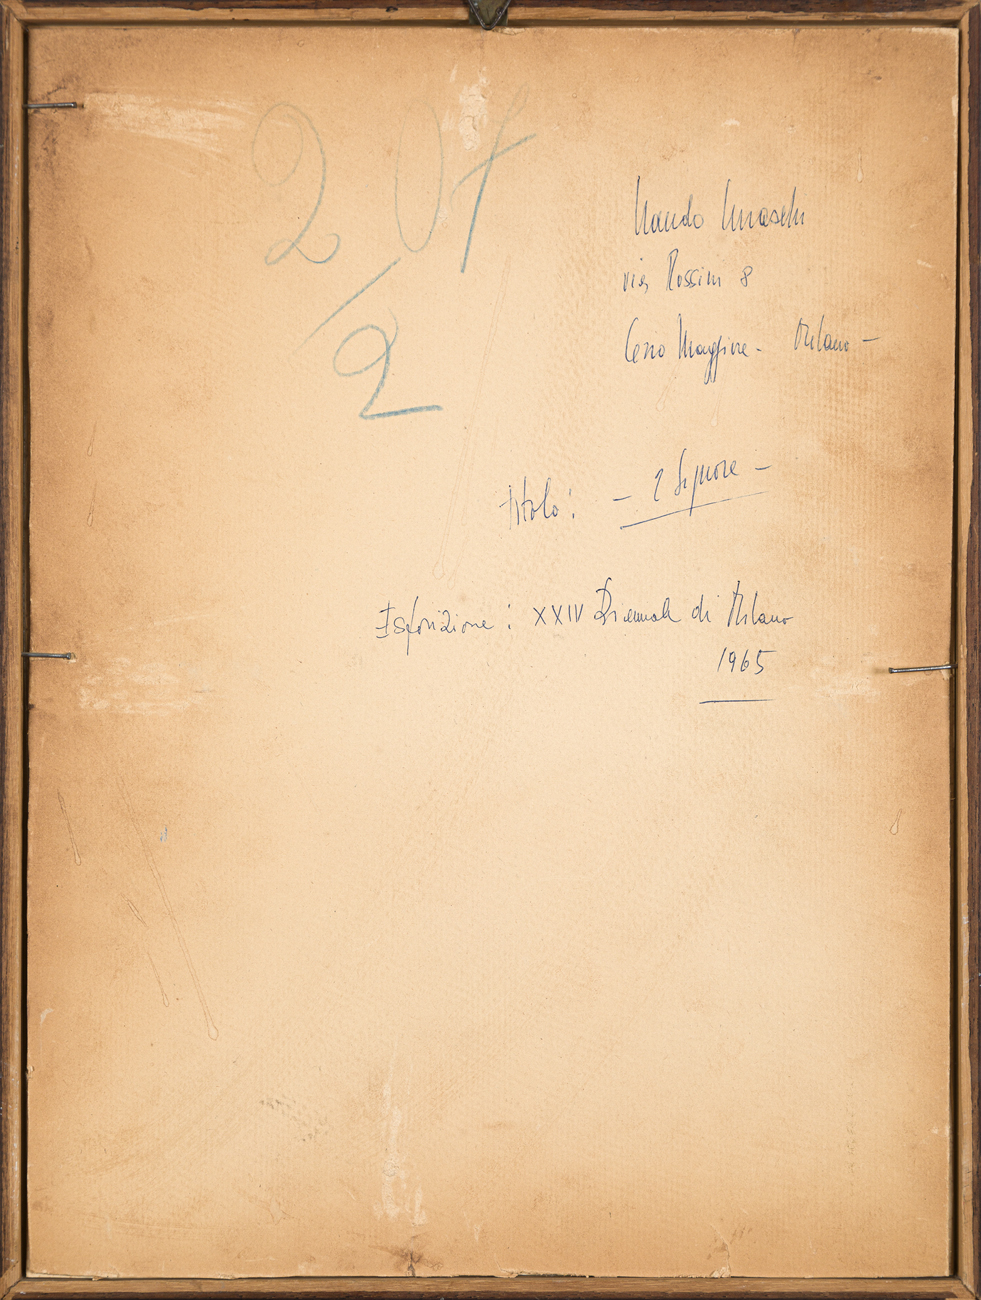 207
/2
Nando Luraschi
via Rossini 8
Cerro Maggiore - Milano -
titolo: - 2 Signore -
Esposizione: XXIV Biennale di Milano
1965